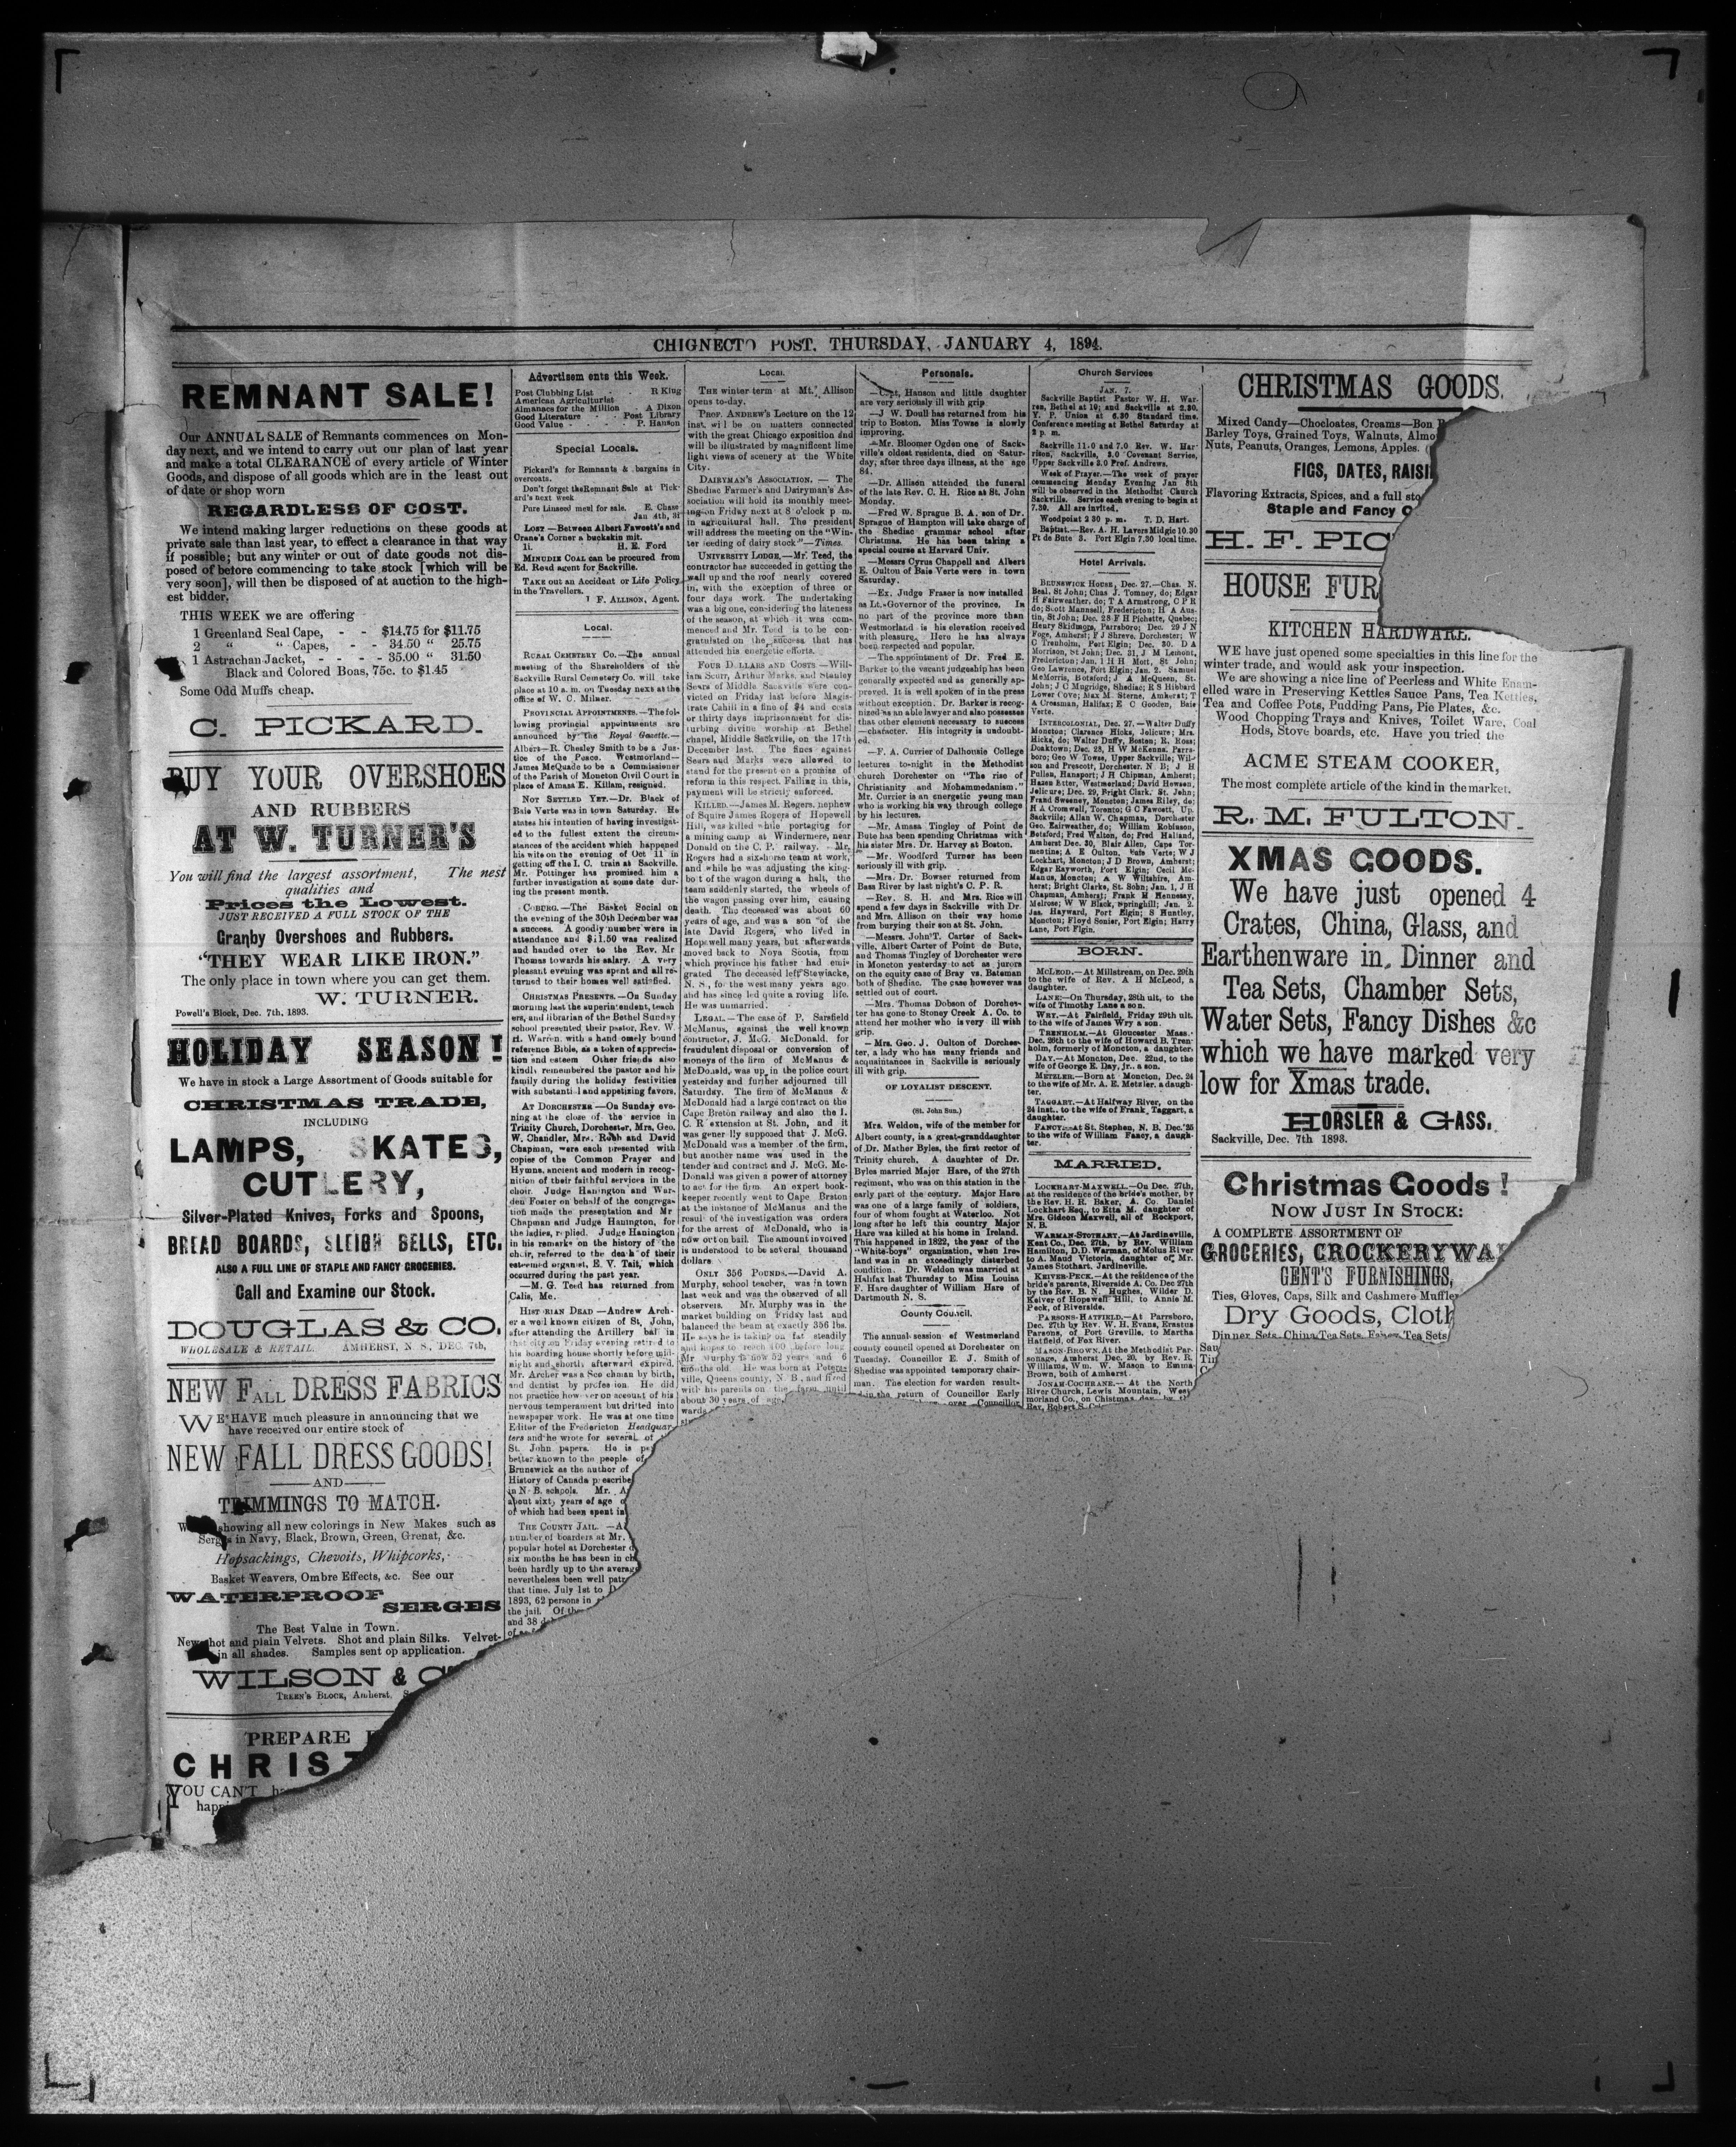 CHIGNECTO POST, THURSDAY, JANUARY 4, 1894.
REMNANT SALE!
Our ANNUAL SALE of Remnants commences on Mon-
day next, and we intend to carry out our plan of last year
and make a total CLEARANCE of every article of Winter
Goods, and dispose of all goods which are in the least out
of date or shop worn
REGARDLESS OF COST.
We intend making larger reductions on these goods at
private sale than last year, to effect a clearance in that way
if possible; but any winter or out of date goods not dis-
posed of before commencing to take stock [which will be
very soon], will then be disposed of at auction to the high-
est bidder,
THIS WEEK we are offering
1 Greenland Seal Cape, - - $14.75 for $11.75
2 " " Capes, - - 34.50 " 25.75
1 Astrachan Jacket, - - - - 35.00 " 31.50
Black and Colored Boas, 75c. to $1.45
Some Odd Muffs cheap.
C. PICKARD.
BUY YOUR OVERSHOES
AND RUBBERS
AT W. TURNER'S
You will find the largest assortment, The nest
qualities and
Prices the Lowest.
JUST RECEIVED A FULL STOCK OF THE
Granby Overshoes and Rubbers.
"THEY WEAR LIKE IRON."
The only place in town where you can get them.
W. TURNER.
Powell's Block, Dec. 7th, 1893.
HOLIDAY SEASON!
We have in stock a Large Assortment of Goods suitable for
CHRISTMAS TRADE,
INCLUDING
LAMPS, SKATES,
CUTLERY,
Silver-Plated Knives, Forks and Spoons,
BREAD BOARDS, SLEIGH BELLS, ETC.
ALSO A FULL LINE OF STAPLE AND FANCY GROCERIES.
Call and Examine our Stock.
DOUGLAS & CO,
WHOLESALE & RETAIL. AMHERST, N. S., DEC. 7th,
NEW FALL DRESS FABRICS
WE HAVE much pleasure in announcing that we
have received our entire stock of
NEW FALL DRESS GOODS!
AND
TRIMMINGS TO MATCH.
showing all new colorings in New Makes such as
Serges in Navy, Black, Brown, Green, Grenat, &c.
Hopsackings, Chevoits, Whipcorks,
Basket Weavers, Ombre Effects, &c. See our
WATERPROOF SERGES
The Best Value in Town.
New shot and plain Velvets. Shot and plain Silks. Velvet-
in all shades. Samples sent op application.
WILSON & C
TREEN'S BLOCK, Amherst,
PREPARE
CHRIST
YOU CAN'T
Advertisements this Week.
Post Clubbing List - R King
American Agriculturist
Almanacs for the Million - A Dixon
Good Literature - - Post Library
Good Value - - - - P. Hanson
Special Locals.
Pickard's for Remnants & bargains in
overcoats.
Don't forget the Remnant Sale at Pick-
ard's next week
Pure Linseed meal for sale. E. Chase
Jan 4th, 3i
LOST — Between Albert Fawcett's and
Crane's Corner a buckskin mit.
1i. H. E. Ford
MINUDIE COAL can be procured from
Ed. Read agent for Sackville.
TAKE out an Accident or Life Policy
in the Travellers.
F. ALLISON, Agent.
Local.
RURAL CEMETRY CO.—The annual
meeting of the Shareholders of the
Sackville Rural Cemetry Co. will take
place at 10 a. m. on Tuesday next at the
office of W. C. Milner.
PROVINCIAL APPOINTMENTS.—The fol-
lowing provincial appointments are
announced by the Royal Gazette.—
Albert—R. Chesley Smith to be a Jus-
tice of the Peace. Westmorland—
James McQuade to be a Commissioner
of the Parish of Moncton Civil Court in
place of Amasa E. Killam, resigned.
NOT SETTLED YET.—Dr. Black of
Baie Verte was in town Saturday. He
states his intention of having investigat-
ed to the fullest extent the circum-
stances of the accident which happened
his wife on the evening of Oct 11 in
getting off the I. C. train at Sackville.
Mr. Pottinger has promised him a
further investigation at some date dur-
ing the present month.
COBURG.—The Basket Social on
the evening of the 30th December was
a success. A goodly number were in
attendance and $11.50 was realized
and handed over to the Rev. Mr
Thomas towards his salary. A very
pleasant evening was spent and all re-
turned to their homes well satisfied.
CHRISTMAS PRESENTS.—On Sunday
morning last the superintendent, teach
ers, and librarian of the Bethel Sunday
school presented their pastor, Rev. W.
H. Warren, with a handsomely bound
reference Bible, as a token of apprecia-
tion and esteem Other friends also
kindly remembered the pastor and his
family during the holiday festivities
with substantial and appetizing favors.
AT DORCHESTER —On Sunday eve-
ning at the close of the service in
Trinity Church, Dorchester, Mrs. Geo.
W. Chandler, Mrs. Robb and David
Chapman, were each presented with
copies of the Common Prayer and
Hymns, ancient and modern in recog-
nition of their faithful services in the
choir. Judge Hanington and War-
den Foster on behalf of the congrega-
tion made the presentation and Mr
Chapman and Judge Hanington, for
the ladies, replied. Judge Hanington
in his remarks on the history of the
choir, referred to the death of their
esteemed organist, E. V. Tait, which
occurred during the past year.
—M. G. Teed has returned from
Calis, Me.
HISTORIAN DEAD —Andrew Arch-
er a well known citizen of St. John,
after attending the Artillery ball in
that city on Friday evening retired to
his boarding house shortly before mid-
night and shortly afterward expired.
Mr. Archer was a Scotchman by birth,
and dentist by profession. He did
not practice however on account of his
nervous temperament but drifted into
newspaper work. He was at one time
Editor of the Fredericton Headquar-
ters and he wrote for several of
St. John papers. He is
better known to the people of
Brunswick as the author of
History of Canada prescribe
in N. B. schools. Mr.
about sixty years of age
of which had been spent in
THE COUNTY JAIL. —A
number of boarders at Mr.
popular hotel at Dorchester
six months he has been in
been hardly up to the averag
nevertheless been well
that time. July 1st to
1893, 62 persons in
the jail. Of the
and 38
Local.
THE winter term at Mt. Allison
opens to-day.
PROF. ANDREW'S Lecture on the 12
inst. will be on matters connected
with the great Chicago exposition and
will be illustrated by magnificent lime
light views of scenery at the White
City.
DAIRYMAN'S ASSOCIATION. — The
Shediac Farmer's and Dairyman's As-
sociation will hold its monthly meet-
ing on Friday next at 8 o'clock p m.
in agricultural hall. The president
will address the meeting on the "Win-
ter feeding of dairy stock"—Times.
UNIVERSITY LODGE.—Mr. Teed, the
contractor has succeeded in getting the
wall up and the roof nearly covered
in, with the exception of three or
four days work. The undertaking
was a big one, considering the lateness
of the season, at which it was com-
menced and Mr. Teed is to be con-
gratulated on the success that has
attended his energetic efforts.
FOUR DOLLARS AND COSTS —Will-
iam Scurr, Arthur Marks, and Stanley
Sears of Middle Sackville were con-
victed on Friday last before Magis-
trate Cahill in a fine of $4 and costs
or thirty days imprisonment for dis-
turbing divine worship at Bethel
chapel, Middle Sackville, on the 17th
December last. The fines against
Sears and Marks were allowed to
stand for the present on a promise of
reform in this respect. Failing in this,
payment will be strictly enforced.
KILLED.—James M. Rogers, nephew
of Squire James Rogers of Hopewell
Hill, was killed while portaging for
a mining camp at Windermere, near
Donald on the C. P. railway. Mr.
Rogers had a six-horse team at work,
and while he was adjusting the king-
bolt of the wagon during a halt, the
team suddenly started, the wheels of
the wagon passing over him, causing
death. The deceased was about 60
years of age, and was a son of the
late David Rogers, who lived in
Hopewell many years, but afterwards
moved back to Nova Scotia, from
which province his father had emi-
grated The deceased left Stewiacke,
N. S., for the west many years ago
and has since led quite a roving life.
He was unmarried.
LEGAL.—The case of P. Sarsfield
McManus, against the well known
contractor, J. McG. McDonald, for
fraudulent disposal or conversion of
moneys of the firm of McManus &
McDonald, was up in the police court
yesterday and further adjourned till
Saturday. The firm of McManus &
McDonald had a large contract on the
Cape Breton railway and also the I.
C. R extension at St. John, and it
was generally supposed that J. McG.
McDonald was a member of the firm,
but another name was used in the
tender and contract and J. McG. Mc-
Donald was given a power of attorney
to act for the firm. An expert book-
keeper recently went to Cape Breton
at the instance of McManus and the
result of the investigation was orders
for the arrest of McDonald, who is
now out on bail. The amount involved
is understood to be several thousand
dollars
ONLY 356 POUNDS.—David A.
Murphy, school teacher, was in town
last week and was the observed of all
observers. Mr. Murphy was in the
market building on Friday last and
balanced the beam at exactly 356 lbs.
He says he is taking on fat steadily
and hopes to reach 400 before long
Mr Murphy is now 52 years and 6
months old. He was born at Peters-
ville, Queens county, N. B., and lived
with his parents on the farm until
about 30 years of age,
wards
Personals.
—Capt. Hanson and little daughter
are very seriously ill with grip
—J W. Doull has returned from his
trip to Boston. Miss Towse is slowly
improving.
—Mr. Bloomer Ogden one of Sack-
ville's oldest residents, died on Satur-
day, after three days illness, at the age
84.
—Dr. Allison attended the funeral
of the late Rev. C. H. Rice at St. John
Monday.
—Fred W. Sprague B. A. son of Dr.
Sprague of Hampton will take charge of
the Shediac grammar school after
Christmas. He has been taking a
special course at Harvard Univ.
—Messrs Cyrus Chappell and Albert
E. Oulton of Baie Verte were in town
Saturday.
—Ex. Judge Fraser is now installed
as Lt.-Governor of the province. In
no part of the province more than
Westmorland is his elevation received
with pleasure. Here he has always
been respected and popular.
—The appointment of Dr. Fred E.
Barker to the vacant judgeship has been
generally expected and as generally ap-
proved. It is well spoken of in the press
without exception. Dr. Barker is recog-
nized as an able lawyer and also possesses
that other element necessary to success
—character. His integrity is undoubt-
ed.
—F. A. Currier of Dalhousie College
lectures to-night in the Methodist
church Dorchester on "The rise of
Christianity and Mohammedanism."
Mr. Currier is an energetic young man
who is working his way through college
by his lectures.
—Mr. Amasa Tingley of Point de
Bute has been spending Christmas with
his sister Mrs. Dr. Harvey at Boston.
—Mr. Woodford Turner has been
seriously ill with grip.
—Mrs. Dr. Bowser returned from
Bass River by last night's C. P. R.
—Rev. S. H. and Mrs. Rice will
spend a few days in Sackville with Dr
and Mrs. Allison on their way home
from burying their son at St. John.
—Messrs. John T. Carter of Sack-
ville, Albert Carter of Point de Bute,
and Thomas Tingley of Dorchester were
in Moncton yesterday to act as jurors
on the equity case of Bray vs. Bateman
both of Shediac. The case however was
settled out of court.
—Mrs. Thomas Dobson of Dorches-
ter has gone to Stoney Creek A. Co. to
attend her mother who is very ill with
grip.
—Mrs. Geo. J. Oulton of Dorches-
ter, a lady who has many friends and
acquaintances in Sackville is seriously
ill with grip.
OF LOYALIST DESCENT.
(St. John Sun.)
Mrs. Weldon, wife of the member for
Albert county, is a great-granddaughter
of Dr. Mather Byles, the first rector of
Trinity church. A daughter of Dr.
Byles married Major Hare, of the 27th
regiment, who was on this station in the
early part of the century. Major Hare
was one of a large family of soldiers,
four of whom fought at Waterloo. Not
long after he left this country Major
Hare was killed at his home in Ireland.
This happened in 1822, the year of the
"White-boys" organization, when Ire-
land was in an exceedingly disturbed
condition. Dr. Weldon was married at
Halifax last Thursday to Miss Louisa
F. Hare daughter of William Hare of
Dartmouth N. S.
County Council.
The annual session of Westmorland
county council opened at Dorchester on
Tuesday. Councillor E. J. Smith of
Shediac was appointed temporary chair-
man. The election for warden result-
ed in the return of Councillor Early
over Councillor
Church Services
JAN. 7.
Sackville Baptist Pastor W. H. War-
ren, Bethel at 10; and Sackville at 2.30.
Y. P. Union at 6.30 Standard time.
Conference meeting at Bethel Saturday at
2 p. m.
Sackville 11.0 and 7.0 Rev. W. Har-
rison, Sackville, 3.0 Covenant Service,
Upper Sackville 3.0 Prof. Andrews.
Week of Prayer.—The week of prayer
commencing Monday Evening Jan 8th
will be observed in the Methodist Church
Sackville. Service each evening to begin at
7.30. All are invited.
Woodpoint 2 30 p. m. T. D. Hart.
Baptist.—Rev. A. H. Lavers Midgic 10.30
Pt de Bute 3. Port Elgin 7.30 local time.
Hotel Arrivals.
BRUNSWICK HOUSE, Dec. 27.—Chas. N.
Beal, St John; Chas J. Tomney, do; Edgar
H Fairweather, do; T A Armstrong, C P R
do; Scott Mannsell, Fredericton; H A Aus-
tin, St John; Dec. 28 F H Pichette, Quebec;
Henry Skidmore, Parrsboro; Dec. 29 J N
Foge, Amherst; F J Shreve, Dorchester; W
C Trenholm, Port Elgin; Dec. 30. D A
Morrison, St John; Dec. 31, J M Lemont,
Fredericton; Jan. 1 H H Mott, St John;
Geo Lawrence, Port Elgin; Jan. 2. Samuel
McMorris, Botsford; J A McQueen, St.
John; J C Mugridge, Shediac; R S Hibbard
Lower Cove; Max M. Sterne, Amherst; T
A Crossman, Halifax; E C Gooden, Baie
Verte.
INTERCOLONIAL, Dec. 27. —Walter Duffy
Moncton; Clarence Hicks, Jolicure; Mrs.
Hicks, do; Walter Duffy, Boston; R. Ross;
Doaktown; Dec. 28, H W McKenna. Parrs-
boro; Geo W Towse, Upper Sackville; Wil-
son and Prescott, Dorchester, N. B; J H
Pullen, Hansport; J H Chipman, Amherst;
Hazen Ritter, Westmorland; David Hewson,
Jolicure; Dec. 29, Bright Clark, St. John;
Frank Sweeney, Moncton; James Riley, do;
H A Cromwell, Toronto; G C Fawcett, Up.
Sackville; Allan W. Chapman, Dorchester
Geo. Fairweather, do; William Robinson,
Botsford; Fred Walton, do; Fred Halland,
Amherst Dec. 30, Blair Allen, Cape Tor-
mentine; A E Oulton, Baie Verte; W J
Lockhart, Moncton; J D Brown, Amherst;
Edgar Hayworth, Port Elgin; Cecil Mc-
Manus, Moncton; A W Wiltshire, Am-
herst; Bright Clarke, St. John; Jan. 1, J H
Chapman, Amherst; Frank M Hennessy,
Melrose; W W Black, Springhill; Jan. 2.
Jas. Hayward, Port Elgin; S Huntley,
Moncton; Floyd Senier, Port Elgin; Harry
Lane, Port Elgin.
BORN.
MCLEOD.—At Millstream, on Dec. 29th
to the wife of Rev. A H McLeod, a
daughter.
LANE:—On Thursday, 28th ult, to the
wife of Timothy Lane a son.
WRY.—At Fairfield, Friday 29th ult.
to the wife of James Wry a son.
TRENHOLM.—At Gloucester Mass.
Dec. 26th to the wife of Howard B. Tren-
holm, formerly of Moncton, a daughter.
DAY.—At Moncton, Dec. 22nd, to the
wife of George E. Day, Jr., a son.
METZLER.—Born at Moncton, Dec. 24
to the wife of Mr. A. E. Metzler, a daugh-
ter.
TAGGART.—At Halfway River, on the
24 inst., to the wife of Frank Taggart, a
daughter.
FANCY.—At St. Stephen, N. B. Dec. 25
to the wife of William Fancy, a daugh-
ter.
MARRIED.
LOCKHART-MAXWELL.—On Dec. 27th,
at the residence of the bride's mother, by
the Rev. H. R. Baker, A. Co. Daniel
Lockhart Esq., to Etta M. daughter of
Mrs. Gideon Maxwell, all of Rockport,
N. B.
WARMAN-STOTHART.—At Jardineville,
Kent Co., Dec. 27th, by Rev. William
Hamilton, D.D. Warman, of Molus River
to A. Maud Victoria, daughter of Mr.
James Stothart, Jardineville.
KEIVER-PECK.—At the residence of the
bride's parents, Riverside A. Co. Dec 27th
by the Rev. B. N. Hughes, Wilder D.
Keiver of Hopewell Hill, to Annie M.
Peck, of Riverside.
PARSONS-HATFIELD.—At Parrsboro,
Dec. 27th by Rev. W. H. Evans, Erastus
Parsons, of Port Greville, to Martha
Hatfield, of Fox River.
MASON-BROWN. At the Methodist Par-
sonage, Amherst Dec. 20, by Rev. R.
Williams, Wm. W. Mason to Emma
Brown, both of Amherst.
JONAH-COCHRANE.— At the North
River Church, Lewis Mountain, West
morland Co., on Chistmas day, by th
Rev. Robert S.
CHRISTMAS GOODS.
Mixed Candy—Chocloates, Creams—Bon
Barley Toys, Grained Toys, Walnuts, Almo
Nuts, Peanuts, Oranges, Lemons, Apples.
FIGS, DATES, RAISI
Flavoring Extracts, Spices, and a full sto
Staple and Fancy
H. F. PIC
HOUSE FUR
KITCHEN HARDWARE.
WE have just opened some specialties in this line for the
winter trade, and would ask your inspection.
We are showing a nice line of Peerless and White Enam-
elled ware in Preserving Kettles Sauce Pans, Tea Kettles,
Tea and Coffee Pots, Pudding Pans, Pie Plates, &c.
Wood Chopping Trays and Knives, Toilet Ware, Coal
Hods, Stove boards, etc. Have you tried the
ACME STEAM COOKER,
The most complete article of the kind in the market.
R. M. FULTON.
XMAS GOODS.
We have just opened 4
Crates, China, Glass, and
Earthenware in, Dinner and
Tea Sets, Chamber Sets,
Water Sets, Fancy Dishes &c
which we have marked very
low for Xmas trade.
HORSLER & GASS.
Sackville, Dec. 7th 1893.
Christmas Goods!
NOW JUST IN STOCK:
A COMPLETE ASSORTMENT OF
GROCERIES, CROCKERYWA
GENT'S FURNISHINGS,
Ties, Gloves, Caps, Silk and Cashmere Muffle
Dry Goods, Cloth
Dinner Sets, China Tea Sets, Tea Sets
Sau
Tin